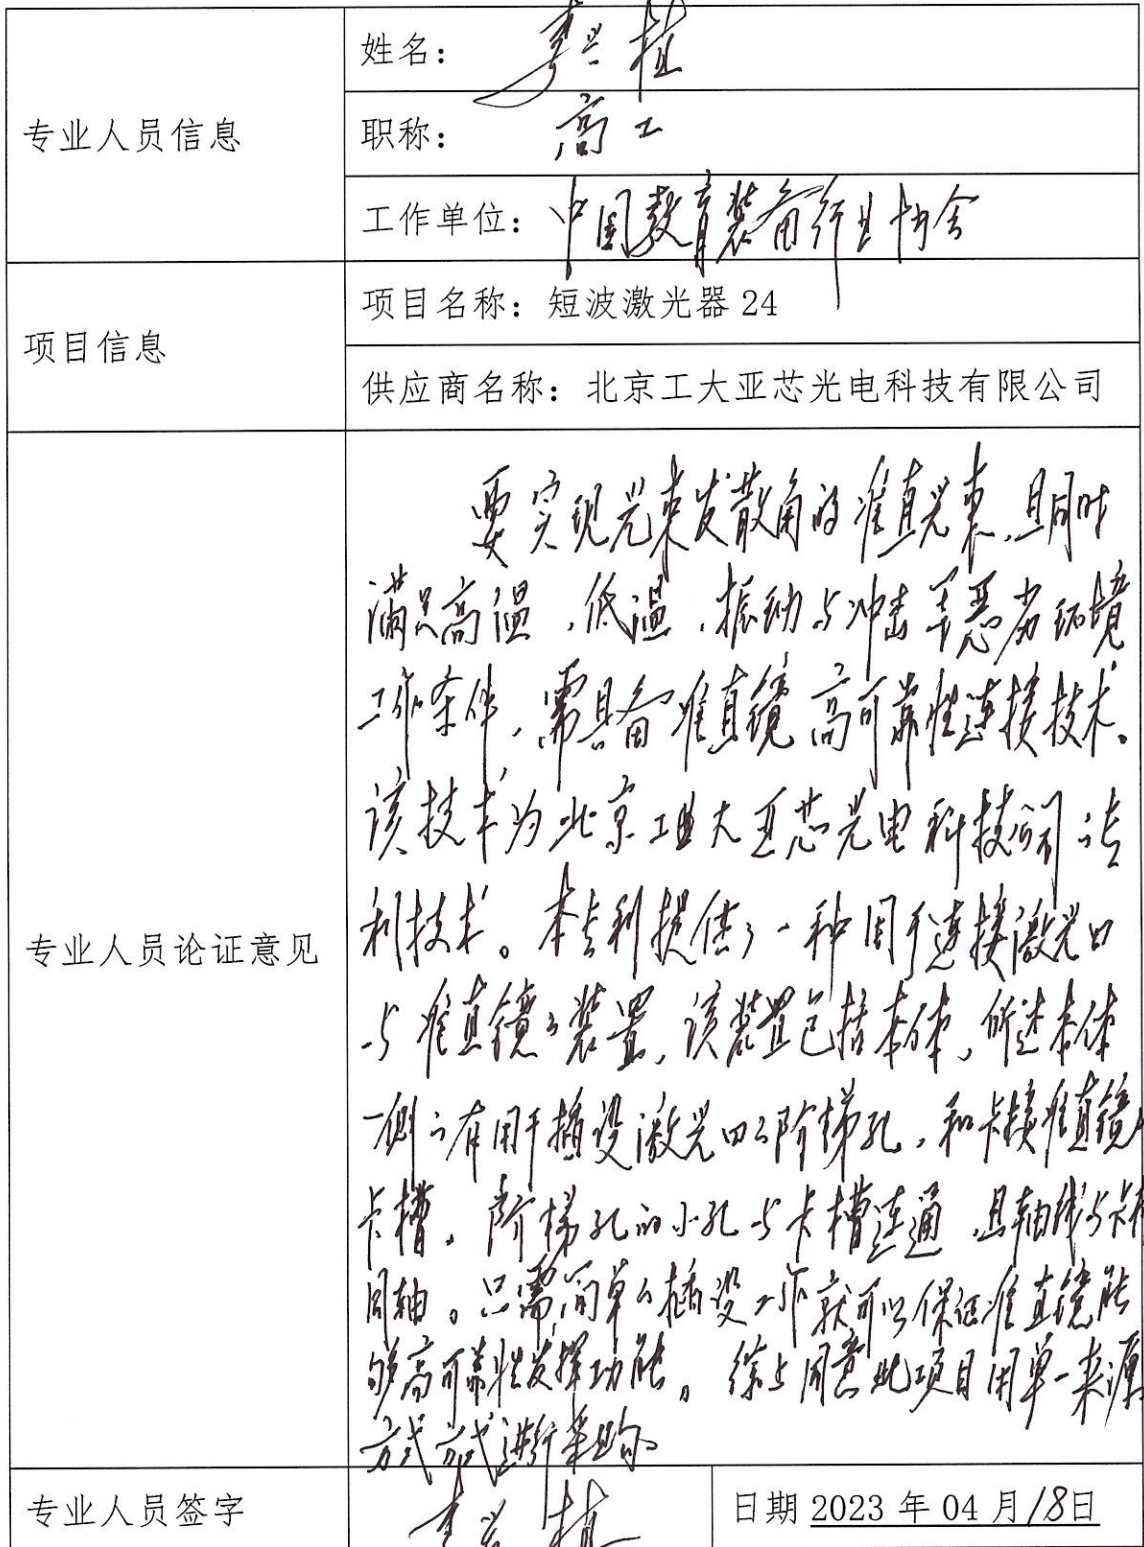 专业人员信息
姓名：李兴植
职称：高工
工作单位：中国教育装备行业协会
项目信息
项目名称：短波激光器 24
供应商名称：北京工大亚芯光电科技有限公司
专业人员论证意见
要实现光束发散角的准直光束，且同时
满足高温，低温，振动与冲击等恶劣环境
工作条件，需具备准直镜高可靠性连接技术。
该技术为北京工业大亚芯光电科技公司专
利技术。本专利提供了一种用于连接激光口
与准直镜的装置，该装置包括本体，所述本体
一侧设有用于插设激光口的阶梯孔，和卡接准直镜
卡槽，阶梯孔的小孔与卡槽连通，且轴线与卡槽
同轴。只需简单的插设工作就可以保证准直镜能
够高可靠性发挥功能。综上同意此项目用单一来源
方式方式进行采购。
专业人员签字
李兴植
日期 2023 年 04 月 18日